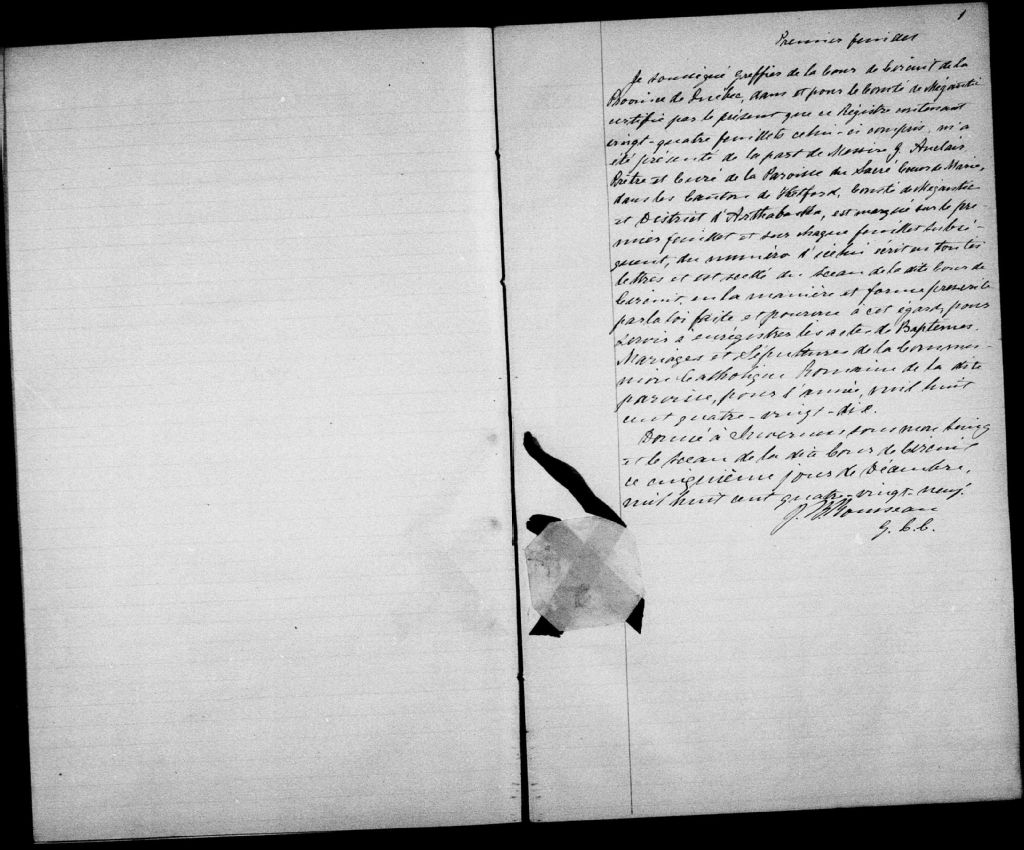 1
Premier feuillet
Je soussigné Greffier de la Cour de Circuit de la
Province de Québec, dans et pour le Comté de Mégantic
certifie par le présent que ce Régistre contenant
vingt-quatre feuillets celui-ci compris, m'a
été présenté de la part de Messire J. Auclair
Prêtre et Curé de la Paroisse du Sacré Coeur de Marie,
dans les Cantons de Thetford, Comté de Mégantic
et District d'Arthabaska, est marqué sur le pre-
mier feuillet et sur chaque feuillet subsé-
quent, du numéro d'icelui écrit en toutes
lettres et est scellé du sceau de la dite Cour de
Circuit, en la manière et forme prescrite
par la loi faite et pourvue à cet égard, pour
servir à enrégistrer les actes de Baptêmes,
Mariages et Sépultures de la Commu-
nion Catholique Romaine de la dite
paroisse, pour l'année, mil huit
cent quatre-vingt-dix.
Donné à Inverness, sous mon seing
et le sceau de la dite Cour de Circuit
ce cinquième jour de Décembre,
mil huit cent quatre-vingt-neuf.
Rousseau
G. C. C.